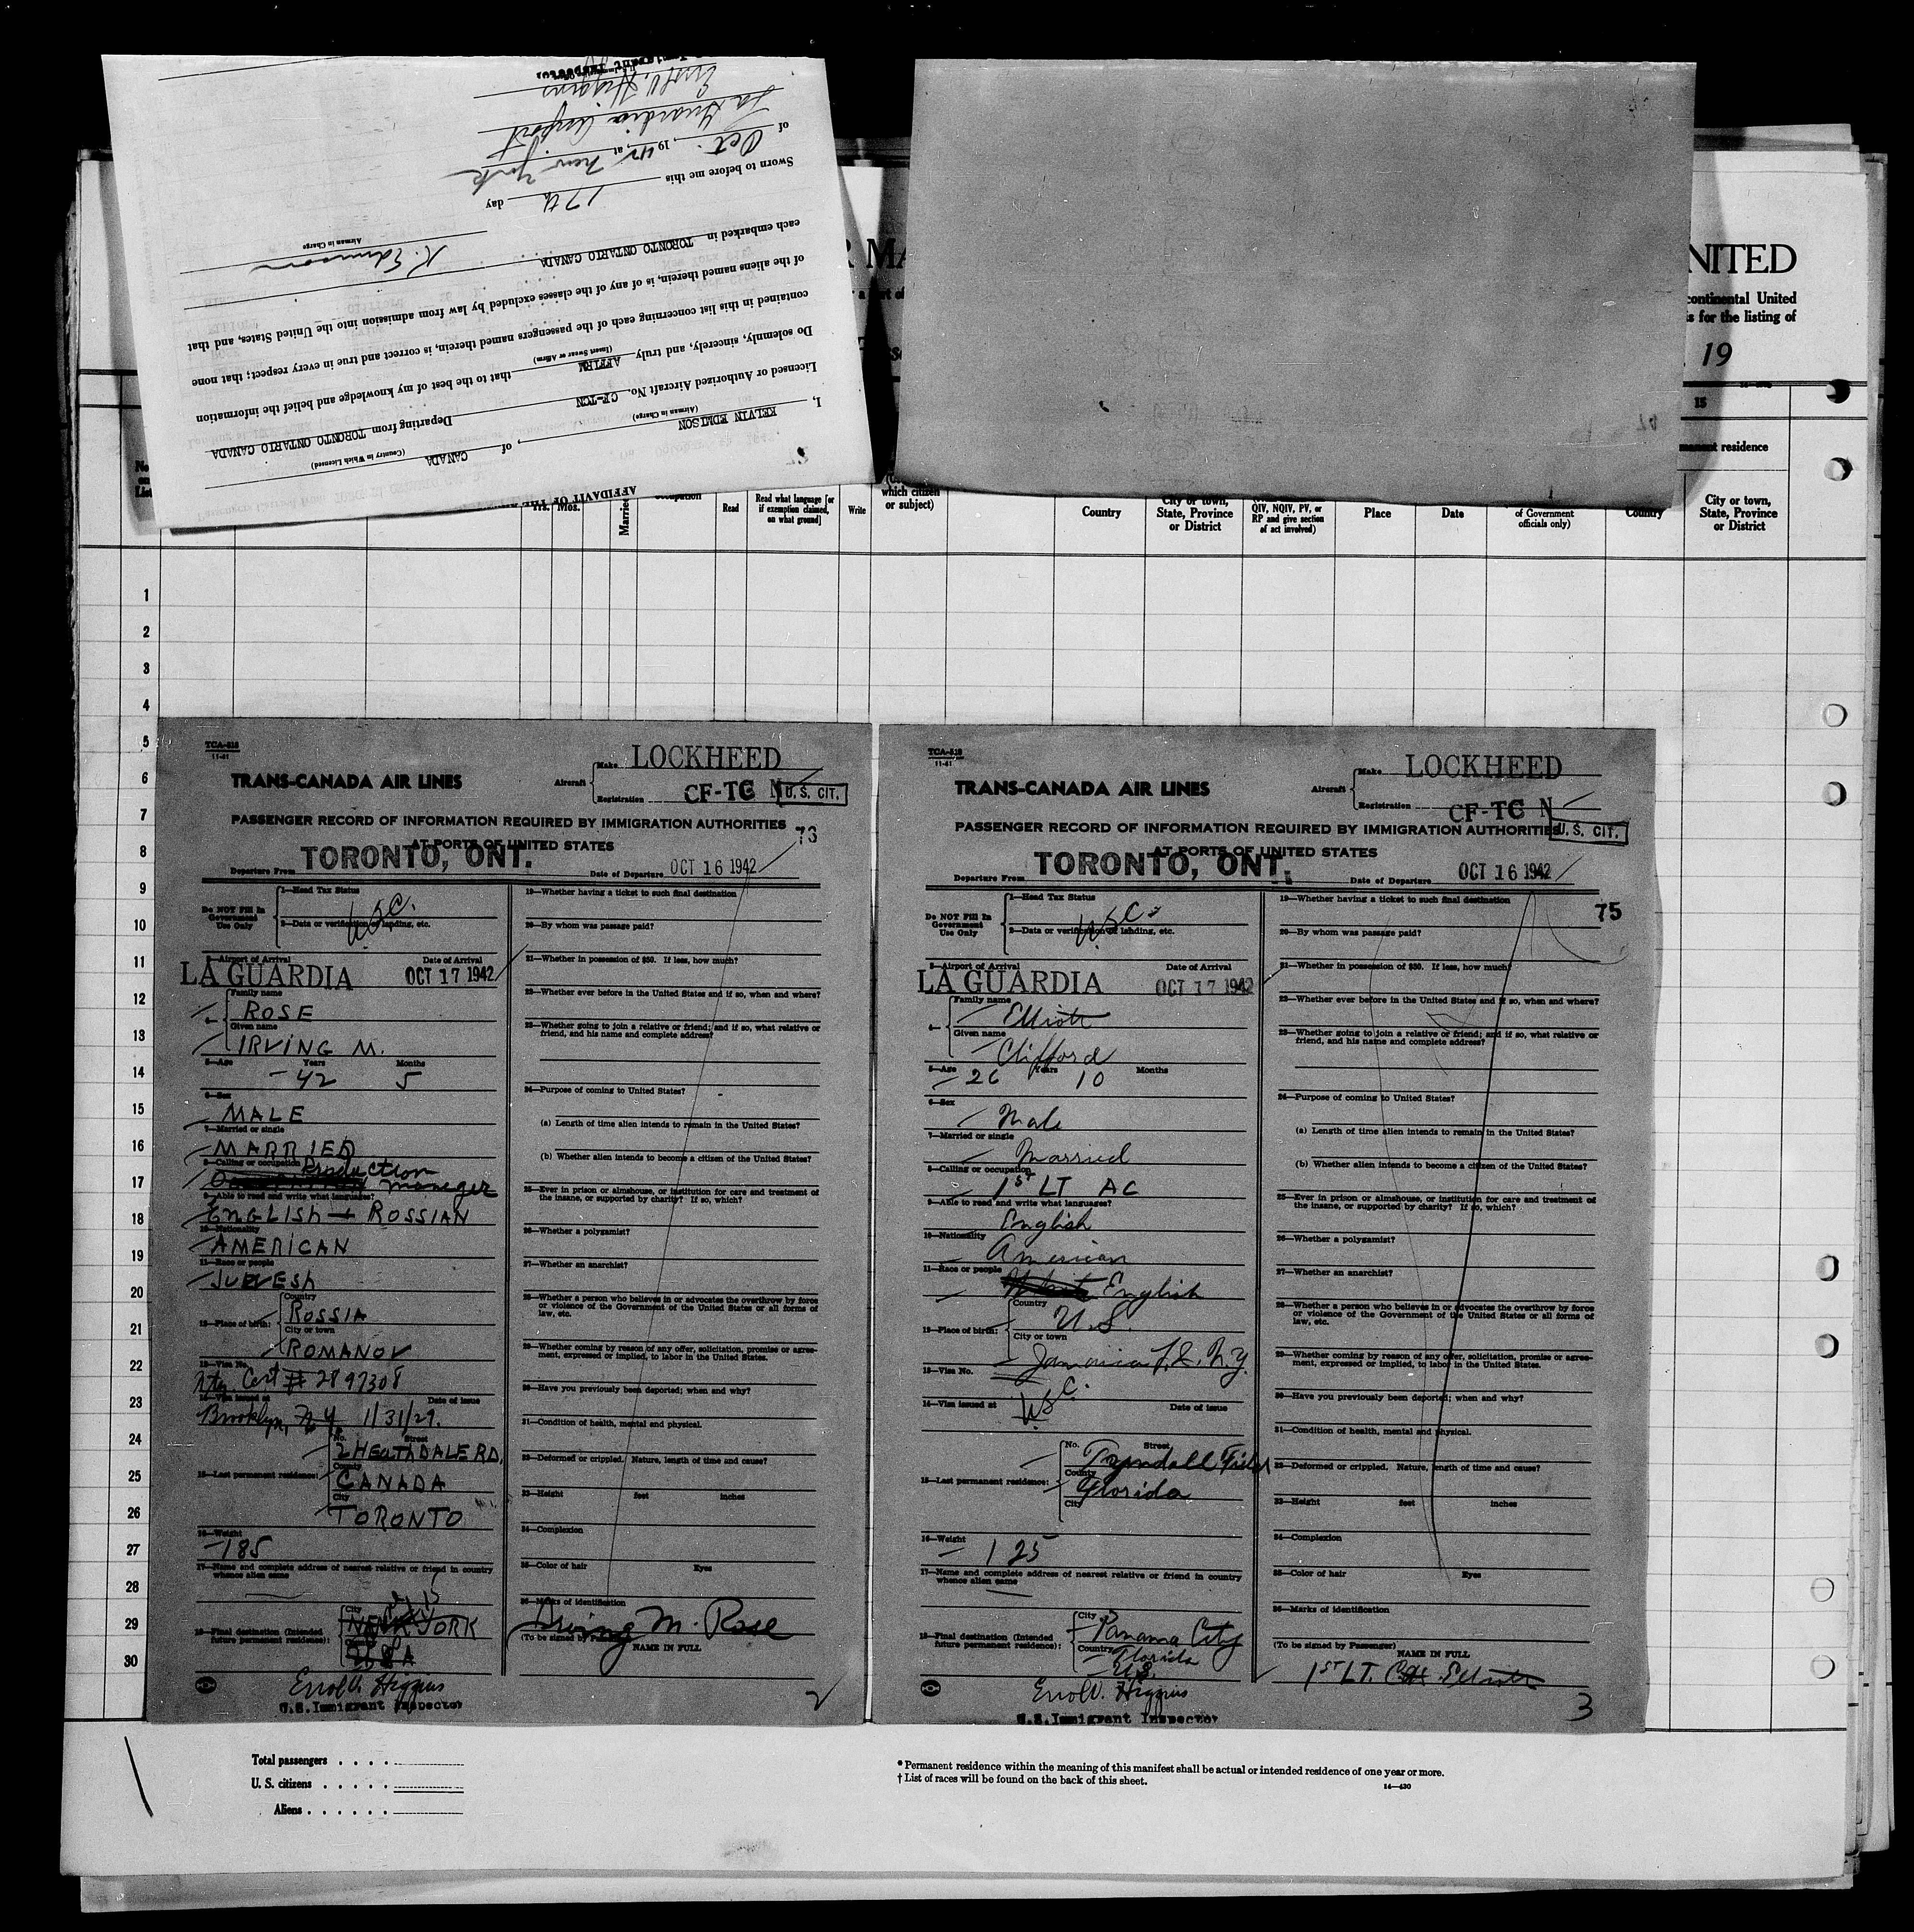 AFFIDAVIT OF THE
I, KELVIN EDMISON, of CANADA
(Airman in Charge) (Country in Which Licensed)
Licensed or Authorized Aircraft No. CF-TCN Departing from TORONTO ONTARIO CANADA
Do solemnly, sincerely, and truly AFFIRM that to the best of my knowledge and belief the information
(Insert Swear or Affirm)
contained in this list concerning each of the passengers named therein, is correct and true in every respect; that none
of the aliens named therein, is of any of the classes excluded by law from admission into the United States, and that
each embarked in TORONTO ONTARIO CANADA
K. Edmison
Airman in Charge
Sworn to before me this 17th day
of Oct., 1942, at New York
La Guardia Airport
Errol V. Higgins
Immigrant Inspector
R MA
NITED
continental United
s for the listing of
, 19
15
manent residence
No.
on
List
Yrs. Mos.
Married
Read
Read what language [or
if exemption claimed,
on what ground]
Write
which citizen
or subject)
Country
City or town,
State, Province
or District
QIV, NQIV, PV, or
RP and give section
of act involved)
Place
Date
of Government
officials only)
Country
City or town,
State, Province
or District
1
2
3
4
5
6
7
8
9
10
11
12
13
14
15
16
17
18
19
20
21
22
23
24
25
26
27
28
29
30
TCA-518
11-41
TRANS-CANADA AIR LINES
Aircraft
Make LOCKHEED
Registration CF-TC N
U. S. CIT.
PASSENGER RECORD OF INFORMATION REQUIRED BY IMMIGRATION AUTHORITIES
AT PORTS OF UNITED STATES
73
Departure From TORONTO, ONT. Date of Departure OCT 16 1942
Do NOT Fill In
Government
Use Only
1—Head Tax Status
USC.
2—Data or verification of landing, etc.
3—Airport of Arrival Date of Arrival
LA GUARDIA OCT 17 1942
4— Family name
ROSE
Given name
IRVING M.
5—Age Years Months
42 5
6—Sex
MALE
7—Married or single
MARRIED
8—Calling or occupation Production
maneger
9—Able to read and write what languages?
ENGLISH + ROSSIAN
10—Nationality
AMERICAN
11—Race or people
JUEWESH
12—Place of birth:
Country
ROSSIA
City or town
ROMANOV
13—Visa No.
Ntz. Cert # 2897308
14—Visa issued at Date of issue
Brooklyn, N.Y. 1/31/29.
15—Last permanent residence:
No. Street
2 HEATHDALE RD,
County
CANADA
City
TORONTO
16—Weight
185
17—Name and complete address of nearest relative or friend in country
whence alien came
18—Final destination (Intended
future permanent residence):
City
NEW YORK
USA
Errol V. Higgins
U.S. Immigrant Inspector
19—Whether having a ticket to such final destination
20—By whom was passage paid?
21—Whether in possession of $50. If less, how much?
22—Whether ever before in the United States and if so, when and where?
23—Whether going to join a relative or friend; and if so, what relative or
friend, and his name and complete address?
24—Purpose of coming to United States?
(a) Length of time alien intends to remain in the United States?
(b) Whether alien intends to become a citizen of the United States?
25—Ever in prison or almshouse, or institution for care and treatment of
the insane, or supported by charity? If so, which?
26—Whether a polygamist?
27—Whether an anarchist?
28—Whether a person who believes in or advocates the overthrow by force
or violence of the Government of the United States or all forms of
law, etc.
29—Whether coming by reason of any offer, solicitation, promise or agree-
ment, expressed or implied, to labor in the United States.
30—Have you previously been deported; when and why?
31—Condition of health, mental and physical.
32—Deformed or crippled. Nature, length of time and cause?
33—Height feet inches
34—Complexion
35—Color of hair Eyes
36—Marks of identification
Irving M. Rose
(To be signed by Passenger)
NAME IN FULL
2
TCA-518
11-41
TRANS-CANADA AIR LINES
Aircraft
Make LOCKHEED
Registration CF-TC N
U. S. CIT.
PASSENGER RECORD OF INFORMATION REQUIRED BY IMMIGRATION AUTHORITIES
AT PORTS OF UNITED STATES
Departure From TORONTO, ONT. Date of Departure OCT 16 1942
75
Do NOT Fill In
Government
Use Only
1—Head Tax Status
USC
2—Data or verification of landing, etc.
3—Airport of Arrival Date of Arrival
LA GUARDIA OCT 17 1942
4— Family name
Elliott
Given name
Clifford
5—Age Years Months
26 10
6—Sex
Male
7—Married or single
Married
8—Calling or occupation
1st LT AC
9—Able to read and write what languages?
English
10—Nationality
American
11—Race or people
White English
12—Place of birth:
Country
U.S.
City or town
Jamaica L.I. N.Y.
13—Visa No.
USC.
14—Visa issued at Date of issue
15—Last permanent residence:
No. Street
Tyndall Field
County
Florida
City
16—Weight
125
17—Name and complete address of nearest relative or friend in country
whence alien came
18—Final destination (Intended
future permanent residence):
City
Panama City
Country
Florida
U.S.
Errol V. Higgins
U.S. Immigrant Inspector
19—Whether having a ticket to such final destination
20—By whom was passage paid?
21—Whether in possession of $50. If less, how much?
22—Whether ever before in the United States and if so, when and where?
23—Whether going to join a relative or friend; and if so, what relative or
friend, and his name and complete address?
24—Purpose of coming to United States?
(a) Length of time alien intends to remain in the United States?
(b) Whether alien intends to become a citizen of the United States?
25—Ever in prison or almshouse, or institution for care and treatment of
the insane, or supported by charity? If so, which?
26—Whether a polygamist?
27—Whether an anarchist?
28—Whether a person who believes in or advocates the overthrow by force
or violence of the Government of the United States or all forms of
law, etc.
29—Whether coming by reason of any offer, solicitation, promise or agree-
ment, expressed or implied, to labor in the United States.
30—Have you previously been deported; when and why?
31—Condition of health, mental and physical.
32—Deformed or crippled. Nature, length of time and cause?
33—Height feet inches
34—Complexion
35—Color of hair Eyes
36—Marks of identification
(To be signed by Passenger)
NAME IN FULL
1ST LT. Elliott
3
Total passengers . . . .
U. S. citizens . . . . .
Aliens . . . . . .
* Permanent residence within the meaning of this manifest shall be actual or intended residence of one year or more.
† List of races will be found on the back of this sheet.
14—430